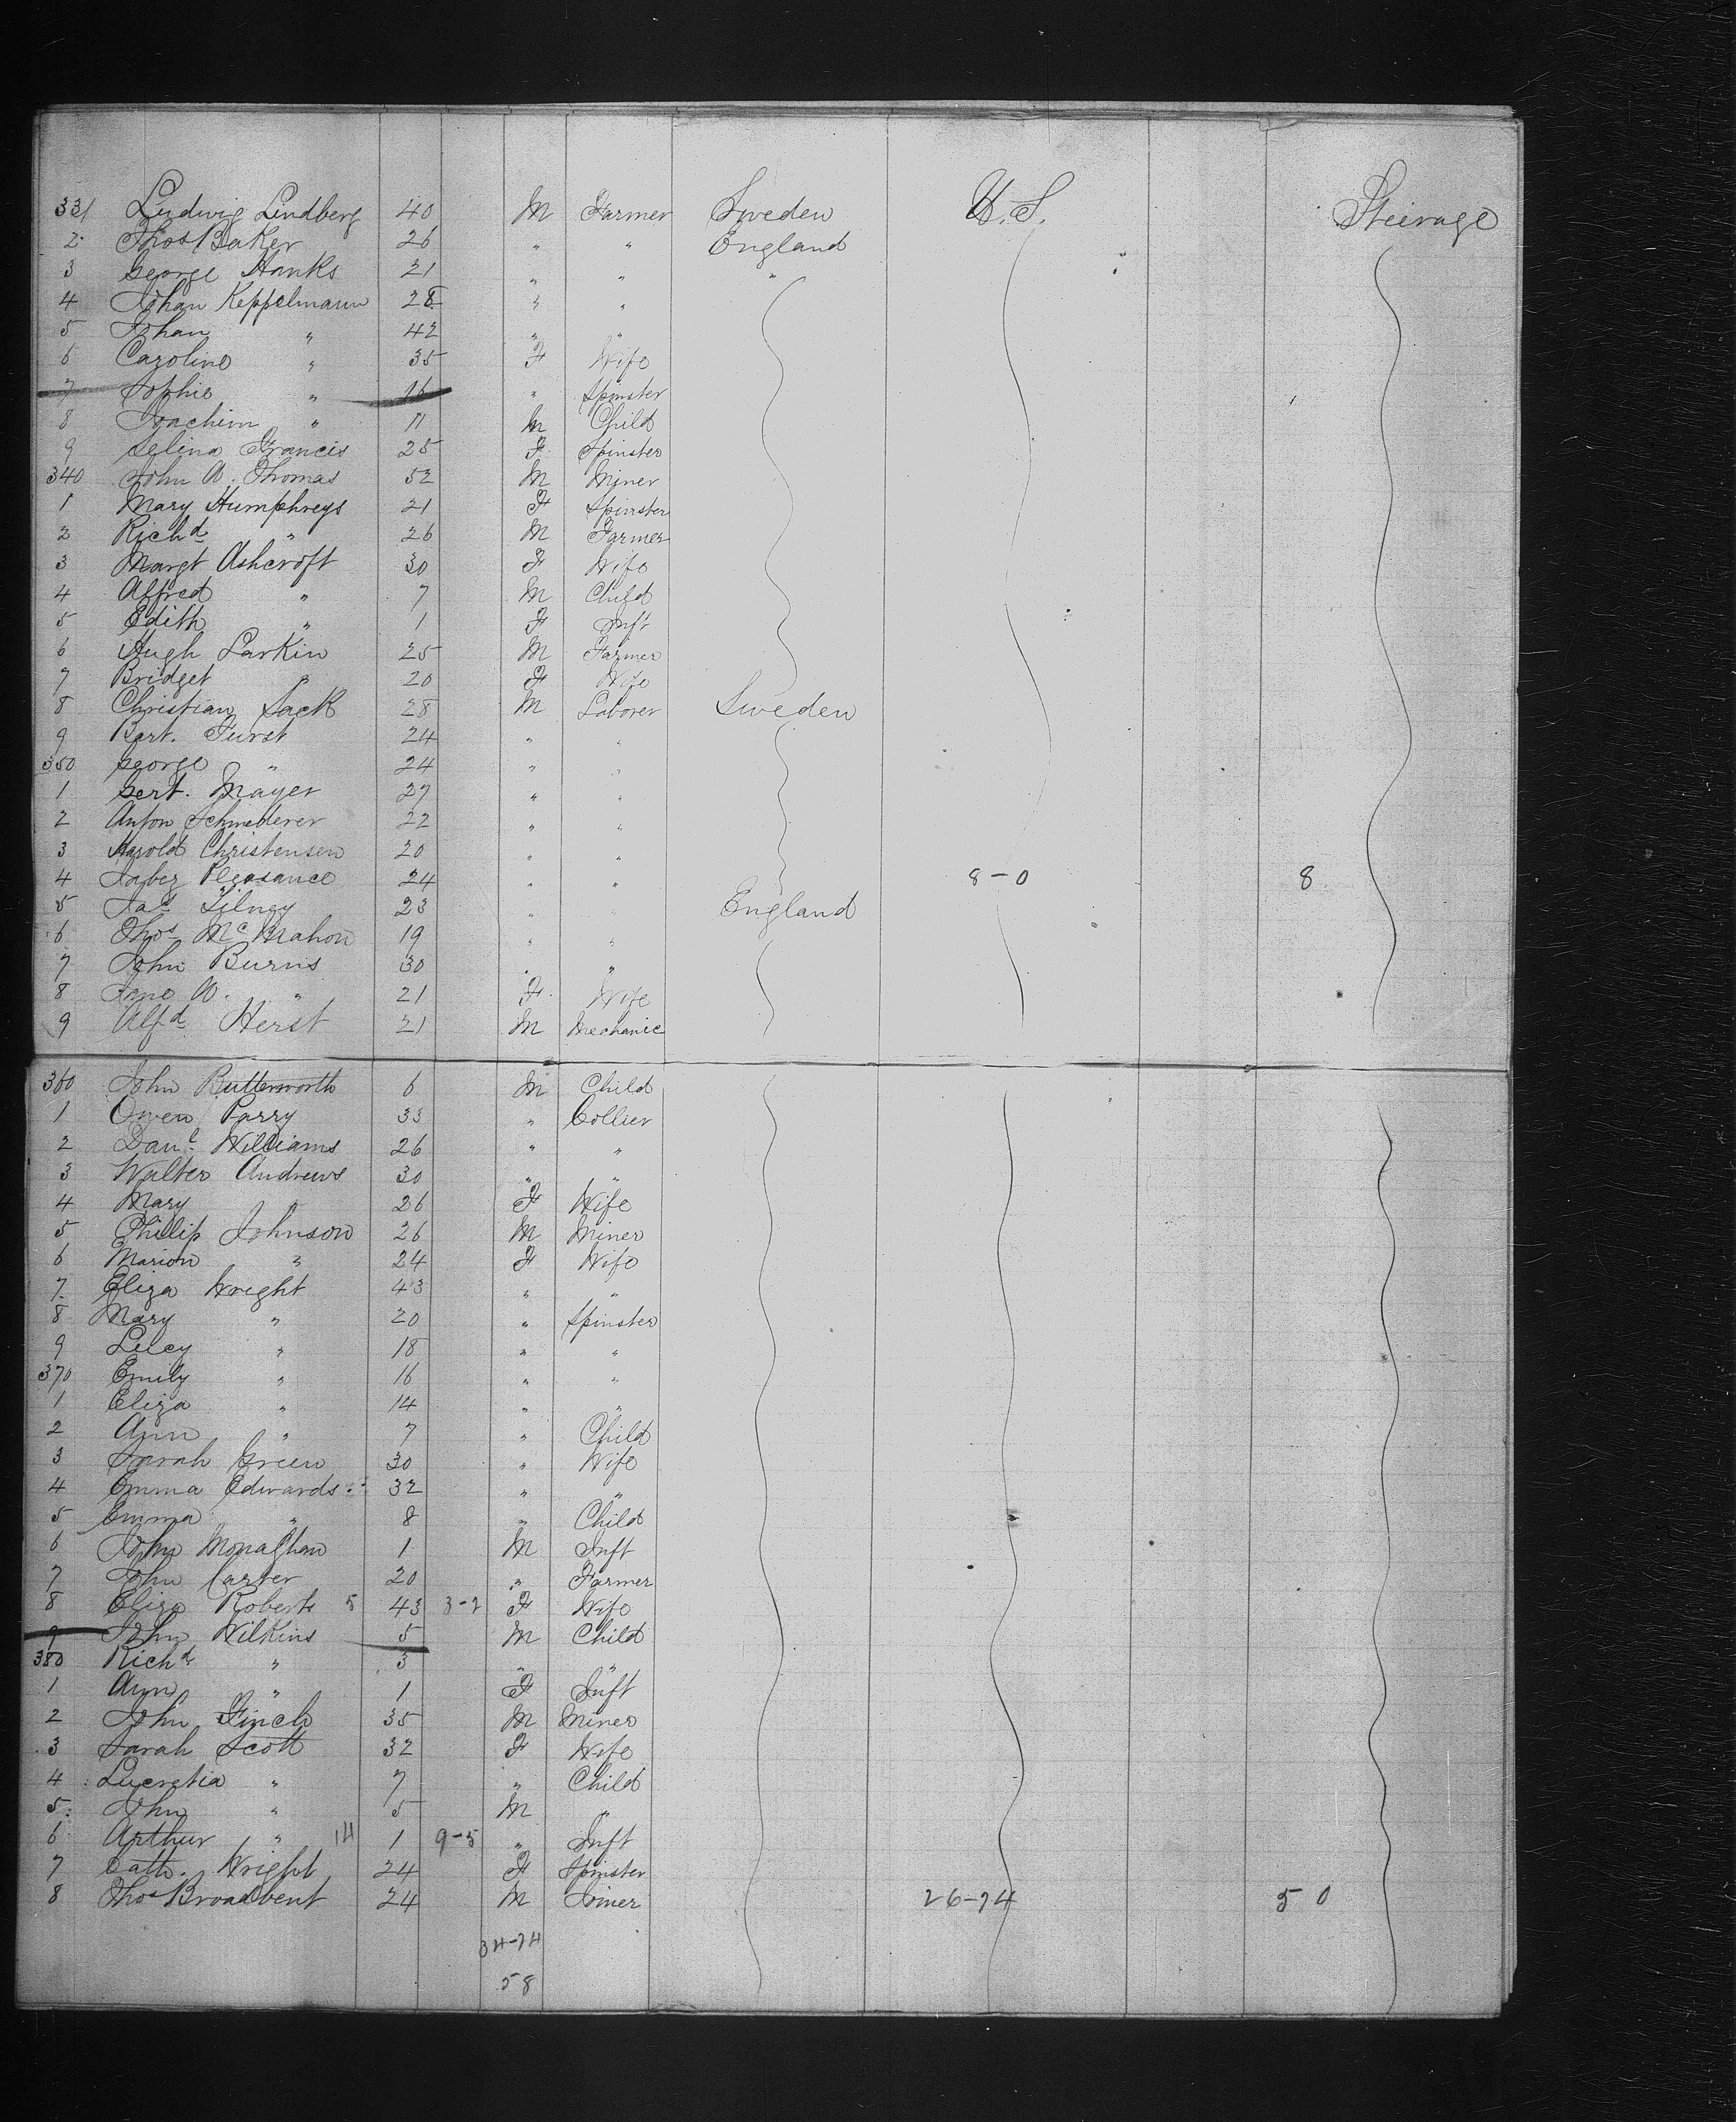 331 Ludwig Lindberg 40 M Farmer Sweden U.S. Steerage
2 Thos Baker 26 " " England
3 George Hanks 21 " " "
4 Johan Keppelmann 28 " "
5 Johan " 42 " "
6 Caroline " 35 F Wife
7 Sophie " 16 " Spinster
8 Joachim " 11 M Child
9 Selina Francis 25 F Spinster
340 John W. Thomas 52 M Miner
1 Mary Humphreys 21 F Spinster
2 Richd " 26 M Farmer
3 Margt Ashcroft 30 F Wife
4 Alfred " 7 M Child
5 Edith " 1 F Inft
6 Hugh Larkin 25 M Farmer
7 Bridget " 20 F Wife
8 Christian Sack 28 M Laborer Sweden
9 Bart. Furst 24 " "
350 George " 24 " "
1 Gert. Mayer 27 " "
2 Anton 22 " "
3 Harold Christensen 20 " "
4 Jabez Pleasance 24 " " 8-0 8
5 Jas Tilney 23 " " England
6 Thos McMahon 19 " "
7 John Burns 30 " "
8 Jane W. " 21 F Wife
9 Alfd Herst 21 M Mechanic
360 John Butterworth 6 M Child
1 Owen Parry 33 " Collier
2 Danl Williams 26 " "
3 Walter Andrews 30 " "
4 Mary " 26 F Wife
5 Phillip Johnson 26 M Miner
6 Marion " 24 F Wife
7 Eliza Wright 43 " "
8 Mary " 20 " Spinster
9 Lucy " 18 " "
370 Emily " 16 " "
1 Eliza " 14 " "
2 Ann " 7 " Child
3 Sarah Green 30 " Wife
4 Emma Edwards 32 " "
5 Emma " 8 " Child
6 John Monaghan 1 M Inft
7 John Carter 20 " Farmer
8 Eliza Roberts 5 43 3-2 F Wife
9 John Wilkins 5 M Child
380 Richd " 3 " "
1 Ann " 1 F Inft
2 John Finch 35 M Miner
3 Sarah Scott 32 F Wife
4 Lucretia " 7 " Child
5 John " 5 M "
6 Arthur " 14 1 9-5 " Inft
7 Cath. Wright 24 F Spinster
8 Thos Broadbent 24 M Joiner 26-24 50
34-24
58